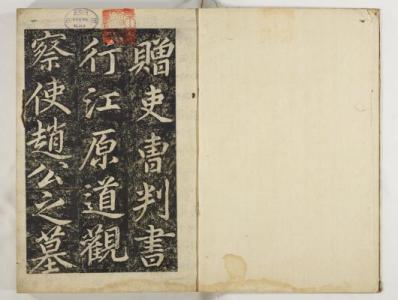 贈吏曺判書
行江原道觀
察使趙公之墓